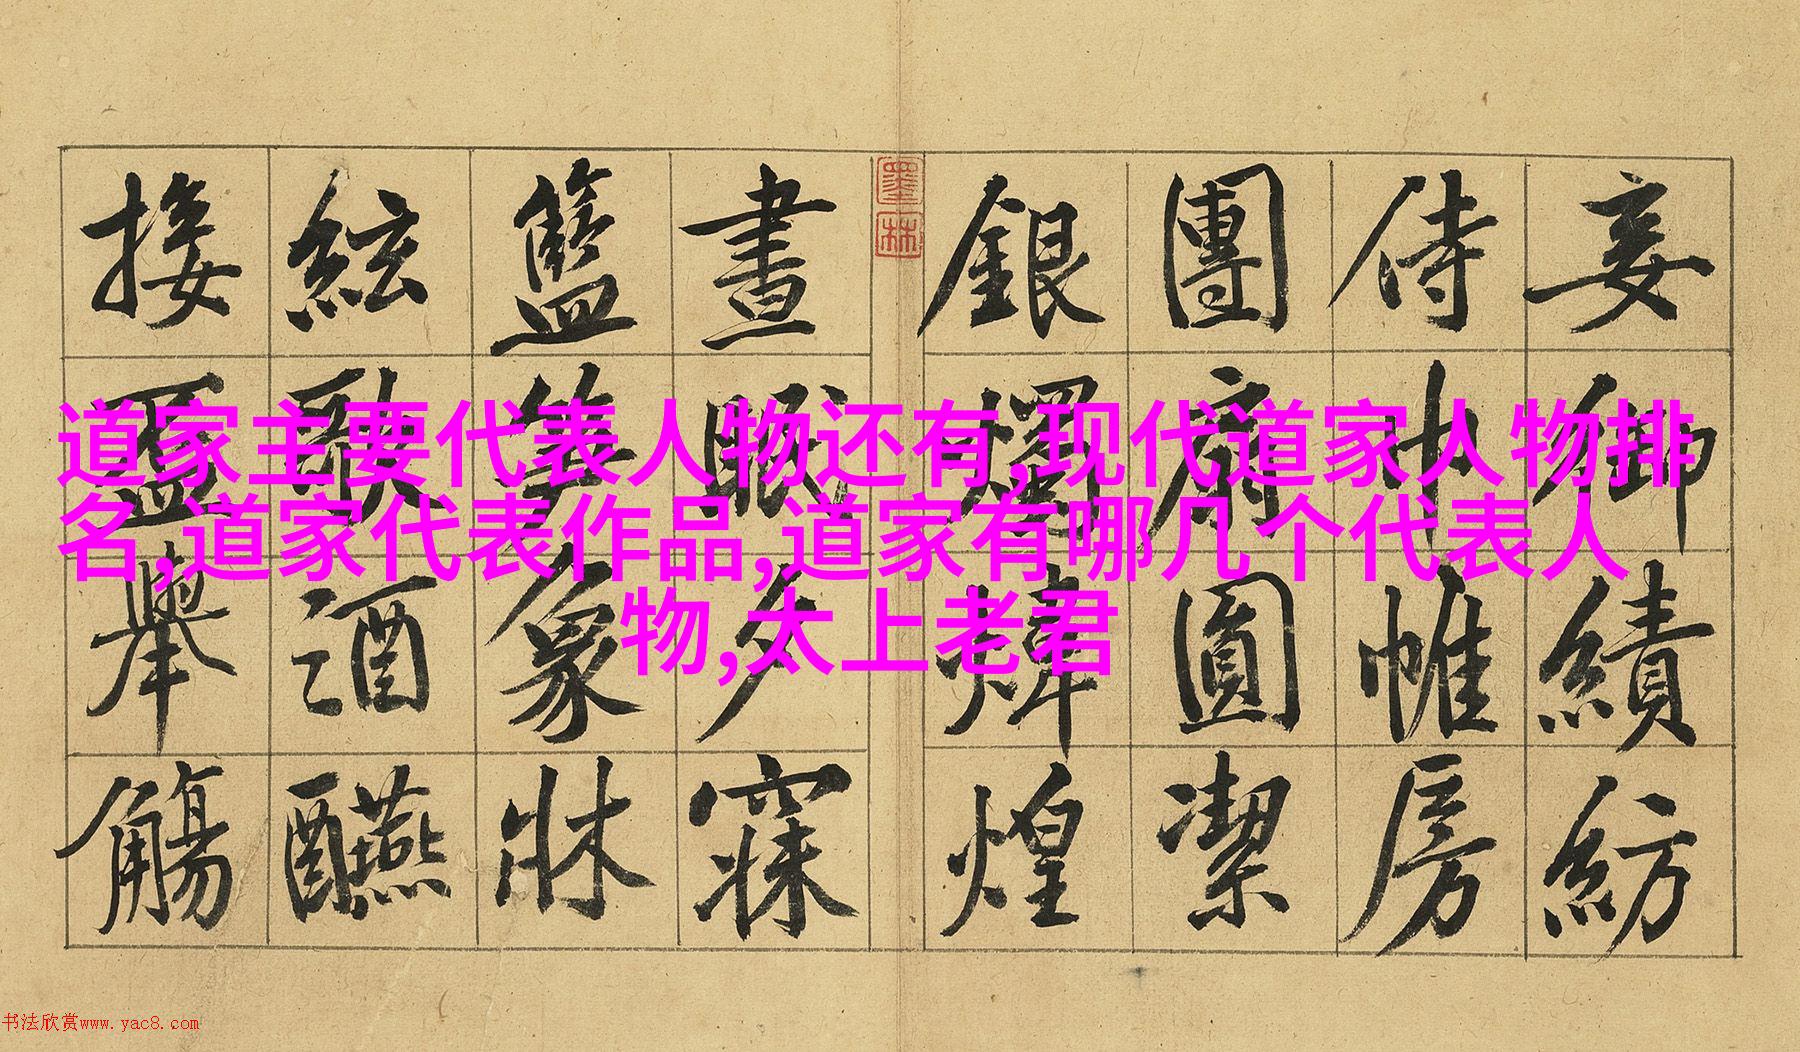 妾御績紡
侍巾帷房
團扇圓潔
銀燭煒煌
墨林
晝眠夕寐
籃笋象牀
絃歌酒醼
接盃舉觴
道家主要代表人物还有,现代道家人物排
名,道家代表作品,道家有哪几个代表人
物,太上老君
书法欣赏www.yac8.com